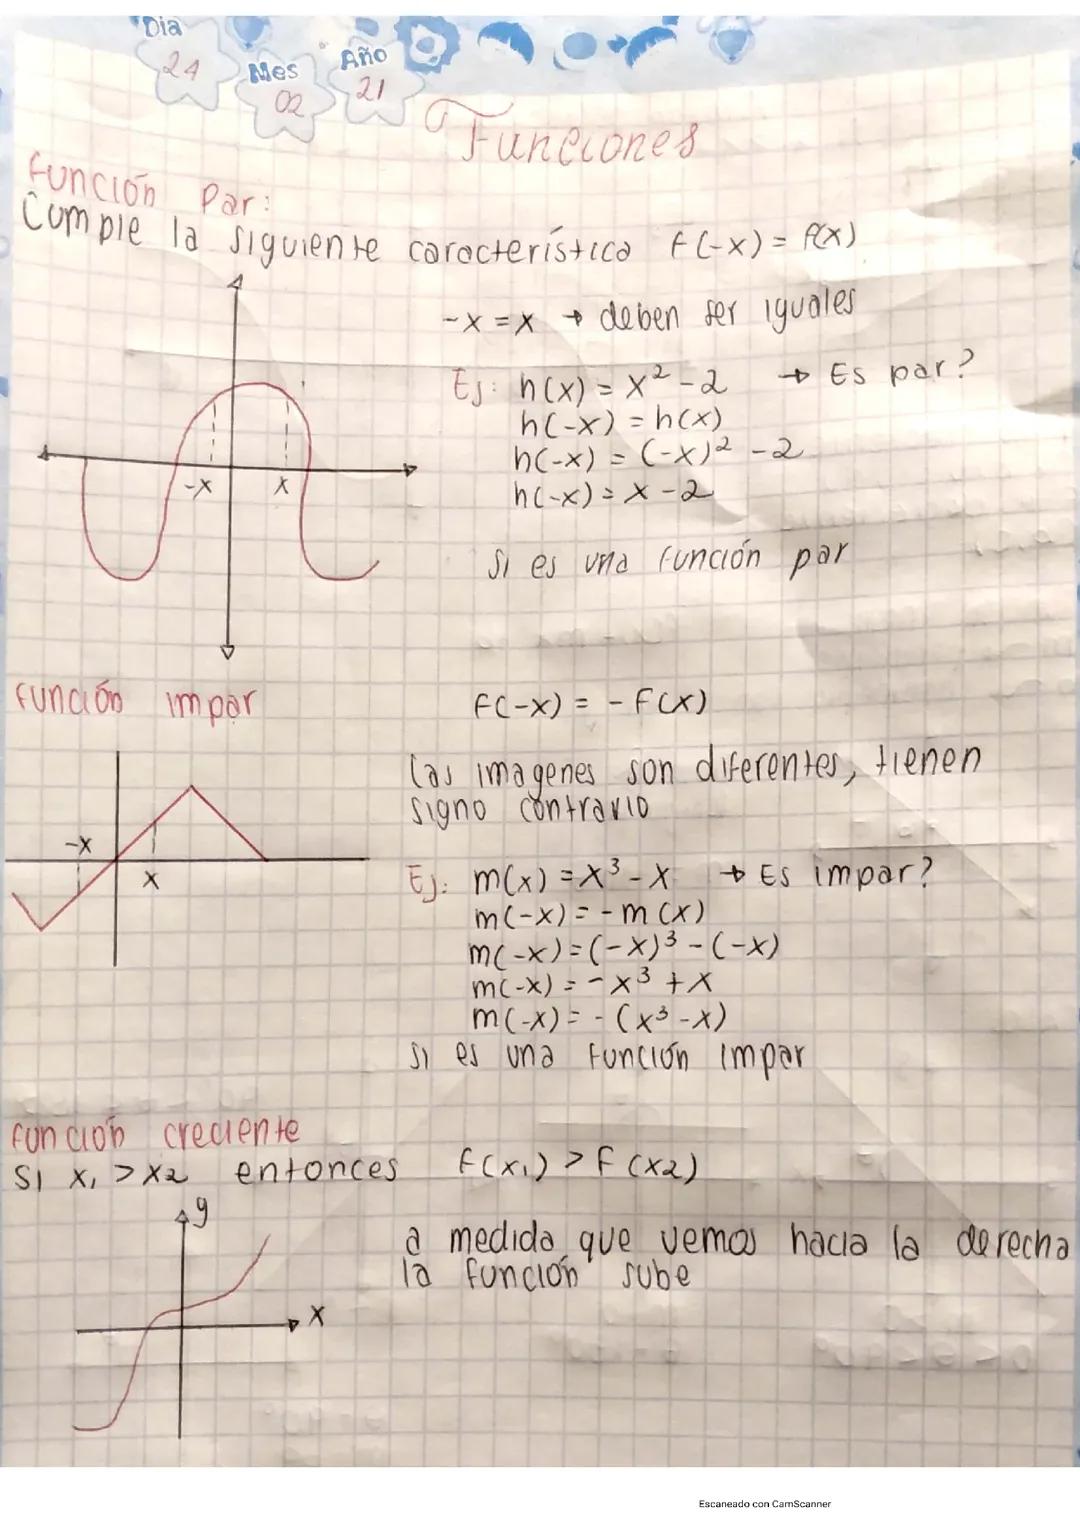 Dia
24
Mes
02
Año
21
Funciones
función Par:
Cumple la siguiente característica f(-x) = f(x)
-x = x → deben ser iguales
Ej: h(x) = x² - 2 → Es par?
h(-x) = h(x)
h(-x) = (-x)² - 2
h(-x) = x - 2
-x x
Si es una función par
función impar
f(-x) = - f(x)
las imagenes son diferentes, tienen
signo contrario
-x
x
Ej: m(x) = x³ - x → Es impar?
m(-x) = - m(x)
m(-x) = (-x)³ - (-x)
m(-x) = - x³ + x
m(-x) = - (x³ - x)
si es una función impar
función creciente
Si x₁ > x₂ entonces f(x₁) > f(x₂)
y
a medida que vemos hacia la derecha
la función sube
x
Escaneado con CamScanner